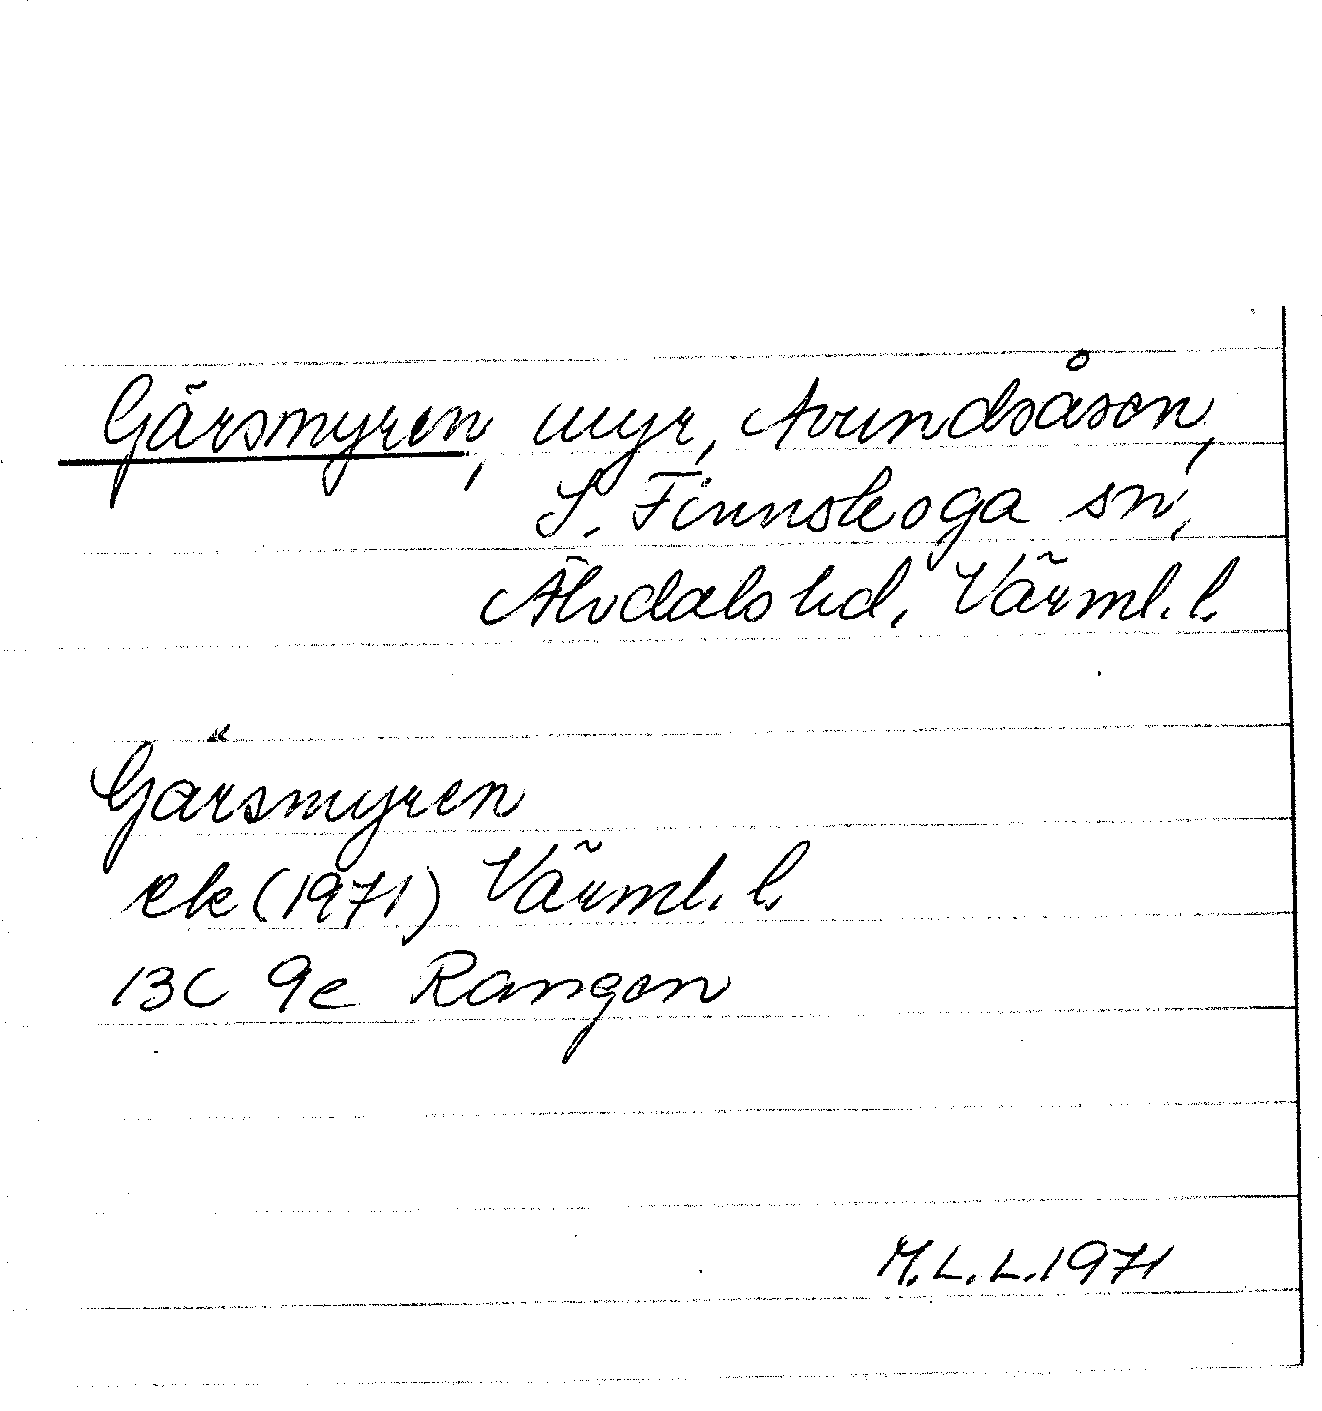 Gärsmyren, myr, Avundsåsen,
S. Finnskoga sn,
Älvdals hd, Värml. l.
Gärsmyren
ek (1971) Värml. l.
13C 9e Rangen
M.L.L. 1971